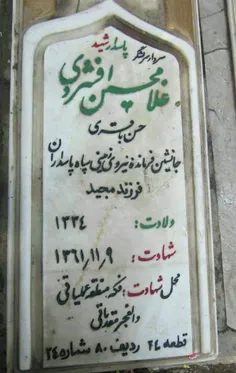 سردار سرلشگر پاسدار رشید
غلامحسین افشردی
حسن باقری
جانشین فرمانده نیروی زمینی سپاه پاسداران
فرزند مجید
ولادت: ۱۳۳۴
شهادت: ۱۳۶۱,۱۱,۹
محل شهادت: فکه منطقه عملیاتی
والفجر مقدماتی
قطعه ۲۴ ردیف ۸۰ شماره ۲۴